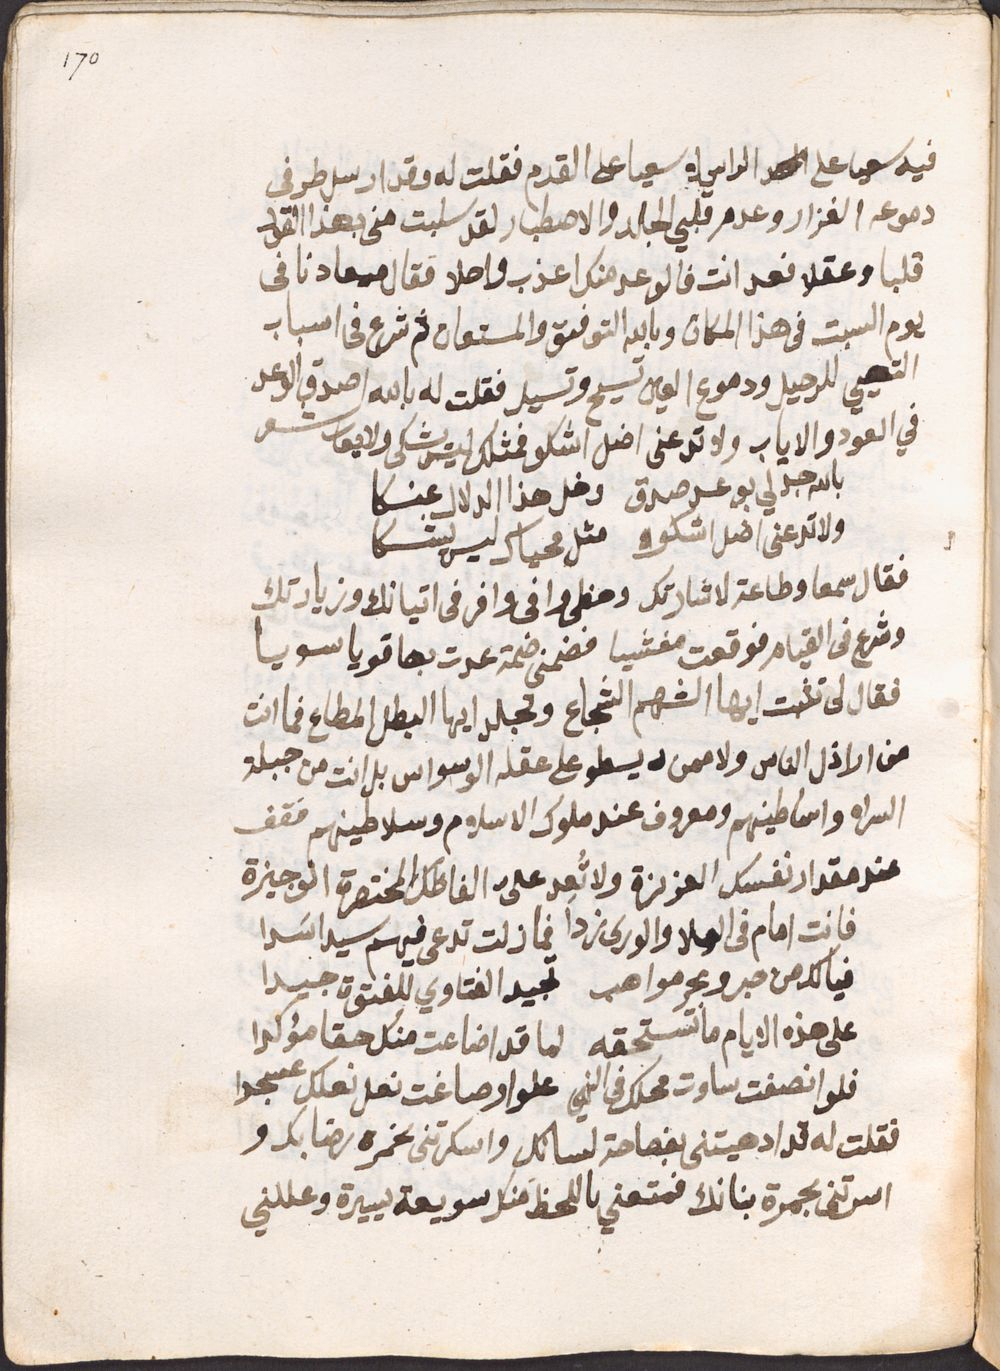 170
فيه سعيا على الراس لا سعيا على القدم فقلت له وقد ارسل طرفى
دموعه الغزار وعدم قلبي الجلد والاصطبار لقد سلبت منى بهذا القول
قلبا وعقلا فعد انت فالوعد منك اعذب واحلا فقال ميعادنا فى
يوم السبت فى هذا المكان وبالله التوفيق والمستعان ثم شرع فى اسباب
التهيي للرحيل ودموع العين تسيح وتسيل فقلت له بالله اصدق الوعد
في العود والاياب ولا تدعنى اضل اشكو فمثلك ليس يشكى ولا يعاب شعر
بالله جد لي بوعد صدق وخل هذا الدلال عنكا
ولا تدعنى اضل اشكو مثل محياك ليس يشكا
فقال سمعا وطاعة لاشارتك وحظى وافى وافر فى اتيانك وزيارتك
وشرع فى القيام فوقعت مغشيا فضمنى ضمة عدت بها قويا سويا
فقال لى تثبت ايها الشهم الشجاع وتجلد ايها البطل المطاع فما انت
من اراذل الناس ولا ممن يسطو على عقله الوسواس بل انت من جبلة
السراه واساطينهم ومعروف عند ملوك الاسلام وسلاطينهم فقف
عند مقدار نفسك العزيزة ولا تُعِد علىّ الفاظك المختصرة الوجيزة
فانت امام فى الملا والورى نردا فما زلت تدعى فيهم سيدا اسَدا
فيالك من حبر وبحر مواهب تجيد الفتاوي للفتوة جيدا
على هذه الايام ما تستحقه لما قد اضاعت منك حقا مؤكدا
فلو انصفت ساوت محلك فى النهي علوا وصاغت نعل نعلك عسجدا
فقلت له قد ادهيتنى بفصاحة لسانك واسكرتنى بخمرة رضابك و
اسرتنى بجمرة بنانك فمتعني باللحظ منك سويعة يسيرة وعللني